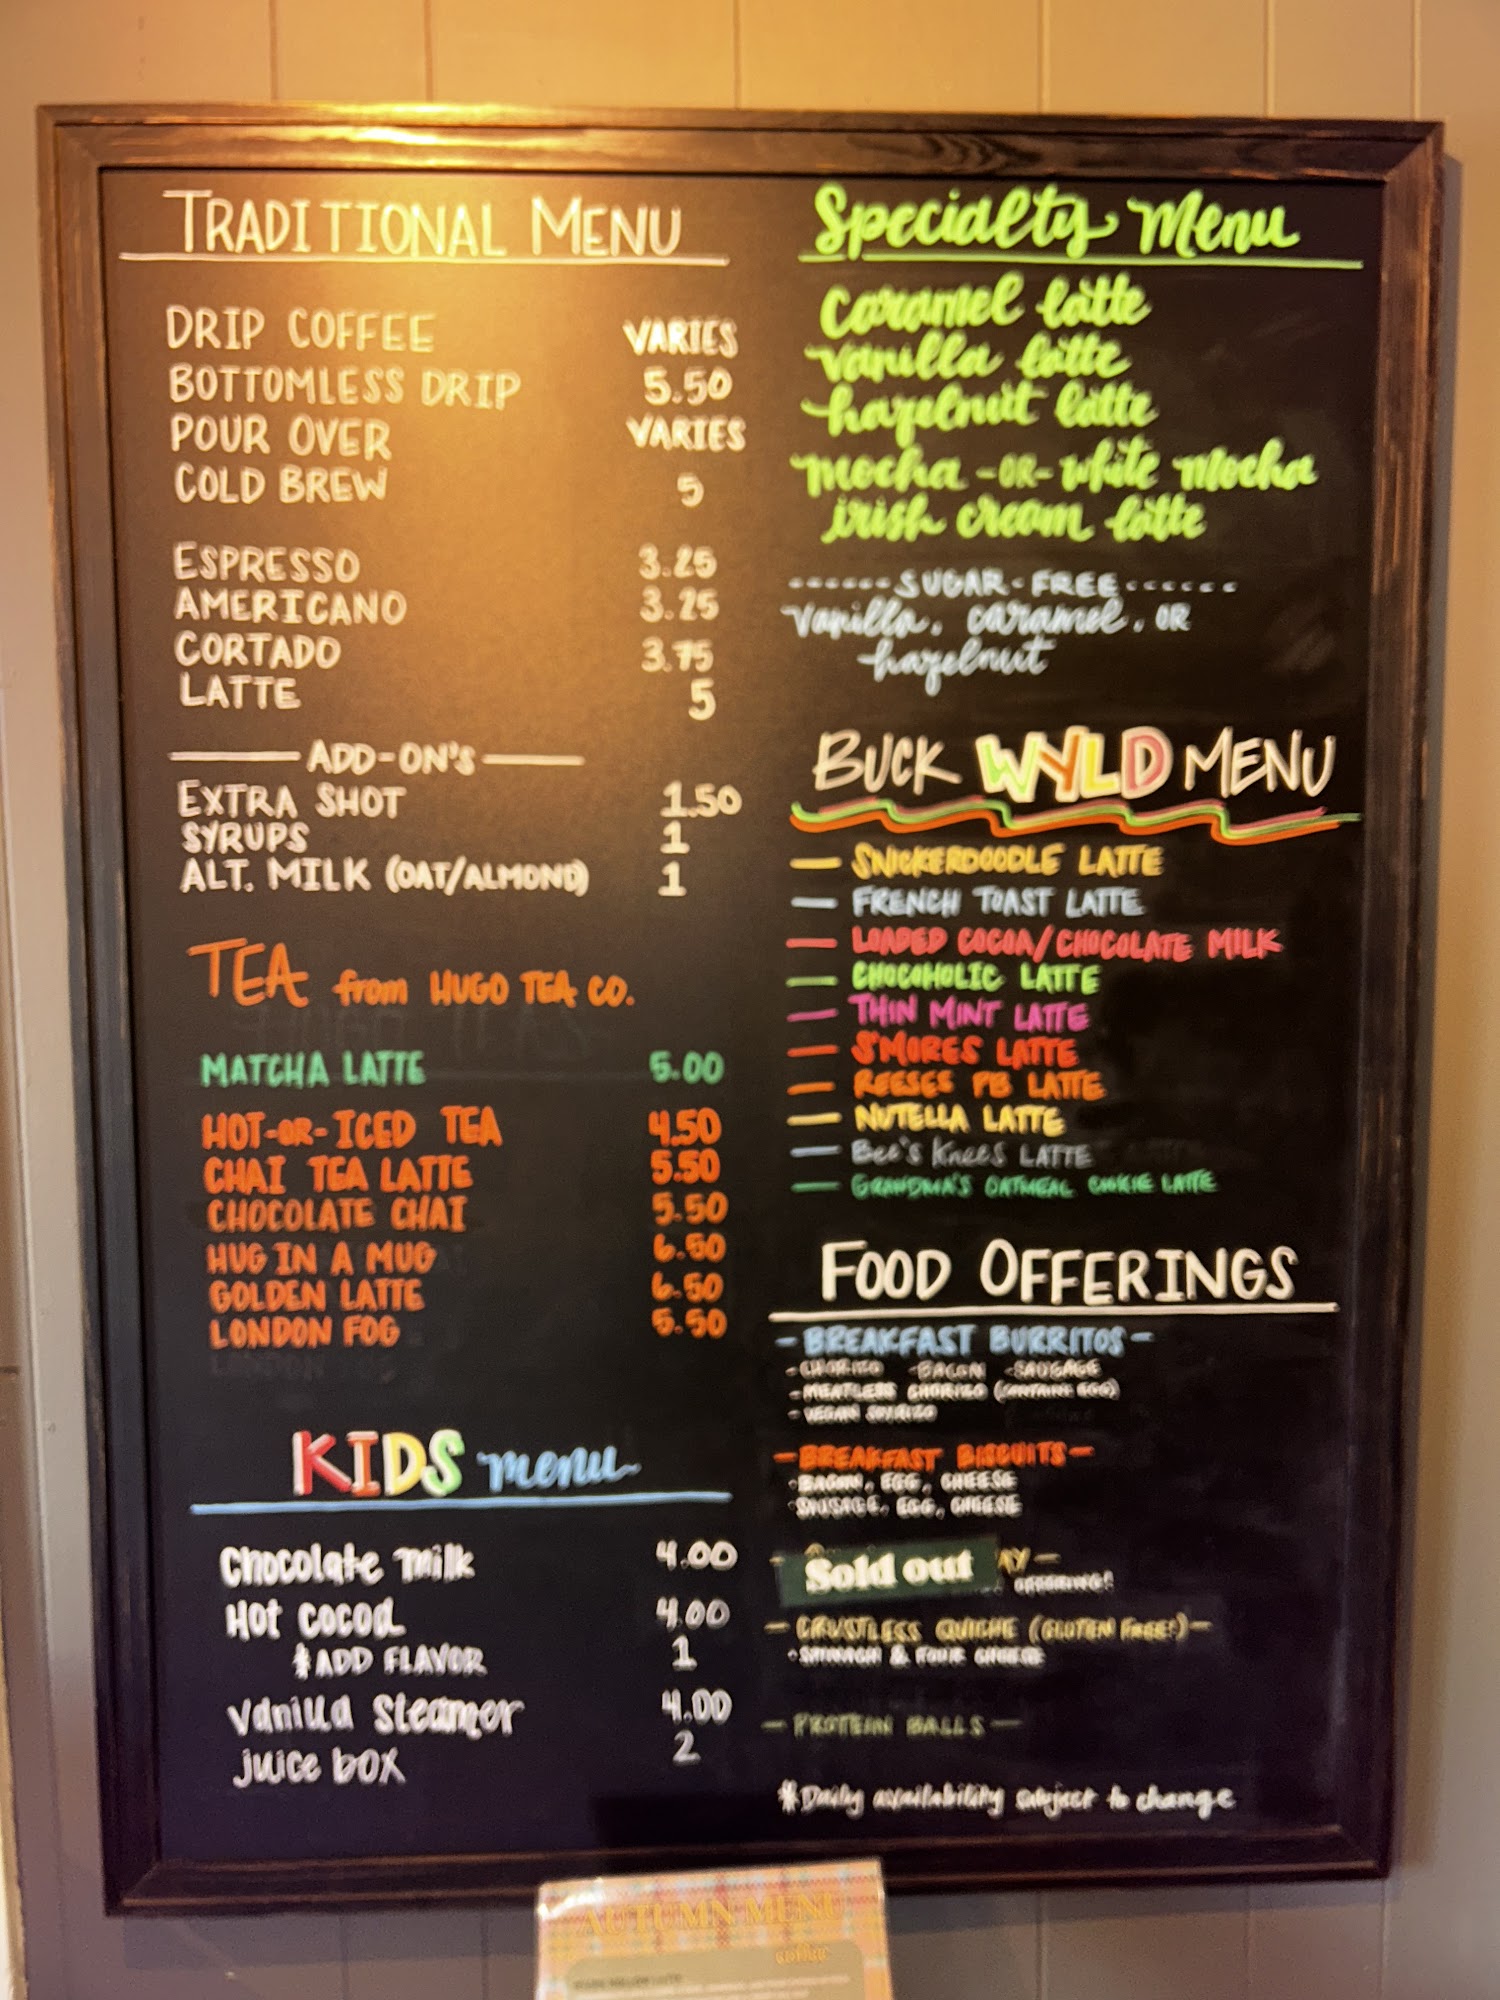 TRADITIONAL MENU
DRIP COFFEE VARIES
BOTTOMLESS DRIP 5.50
POUR OVER VARIES
COLD BREW 5
ESPRESSO 3.25
AMERICANO 3.25
CORTADO 3.75
LATTE 5
ADD-ON'S
EXTRA SHOT 1.50
SYRUPS 1
ALT. MILK (OAT/ALMOND) 1
TEA from HUGO TEA CO.
MATCHA LATTE 5.00
HOT-OR-ICED TEA 4.50
CHAI TEA LATTE 5.50
CHOCOLATE CHAI 5.50
HUG IN A MUG 6.50
GOLDEN LATTE 6.50
LONDON FOG 5.50
KIDS menu
Chocolate milk 4.00
Hot cocoa 4.00
*ADD FLAVOR 1
Vanilla Steamer 4.00
juice box 2
Specialty Menu
Caramel latte
Vanilla latte
hazelnut latte
mocha -OR- white mocha
irish cream latte
SUGAR-FREE
Vanilla, caramel, OR
hazelnut
BUCK WYLD MENU
— SNICKERDOODLE LATTE
— FRENCH TOAST LATTE
— LOADED COCOA/CHOCOLATE MILK
— CHOCOHOLIC LATTE
— THIN MINT LATTE
— S'MORES LATTE
— REESES PB LATTE
— NUTELLA LATTE
— Bee's Knees LATTE
— GRANDMA'S OATMEAL COOKIE LATTE
FOOD OFFERINGS
- BREAKFAST BURRITOS -
- CHORIZO - BACON - SAUSAGE
- MEATLESS CHORIZO (CONTAINS EGG)
- VEGAN SOYRIZO
- BREAKFAST BISCUITS -
· BACON, EGG, CHEESE
· SAUSAGE, EGG, CHEESE
Sold out
OFFERING!
- CRUSTLESS QUICHE (GLUTEN FREE!) -
· SPINACH & FOUR CHEESE
- PROTEIN BALLS -
* Daily availability subject to change
AUTUMN MENU
coffee